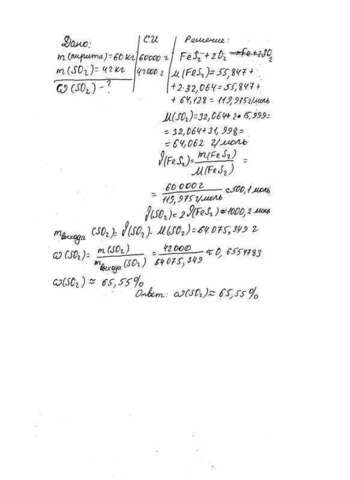 Дано:
m(пирита)=60кг
m(SO₂)=42кг
ω(SO₂)-?
СИ
60000г
42000г
Решение:
FeS₂+2O₂ → Fe+2SO₂
μ(FeS₂)=55,847+
+2·32,064=55,847+
+64,128=119,975г/моль
μ(SO₂)=32,064+2·15,999=
=32,064+31,998=
=64,062 г/моль
ν(FeS₂)=m(FeS₂)/μ(FeS₂)=
=60000г/119,975г/моль≈500,1моль
ν(SO₂)=2ν(FeS₂)≈1000,2моль
mвыхода(SO₂)=ν(SO₂)·μ(SO₂)=64075,349г
ω(SO₂)=m(SO₂)/mвыхода(SO₂)=42000/64075,349≈0,6554783
ω(SO₂)≈65,55%
Ответ: ω(SO₂)≈65,55%